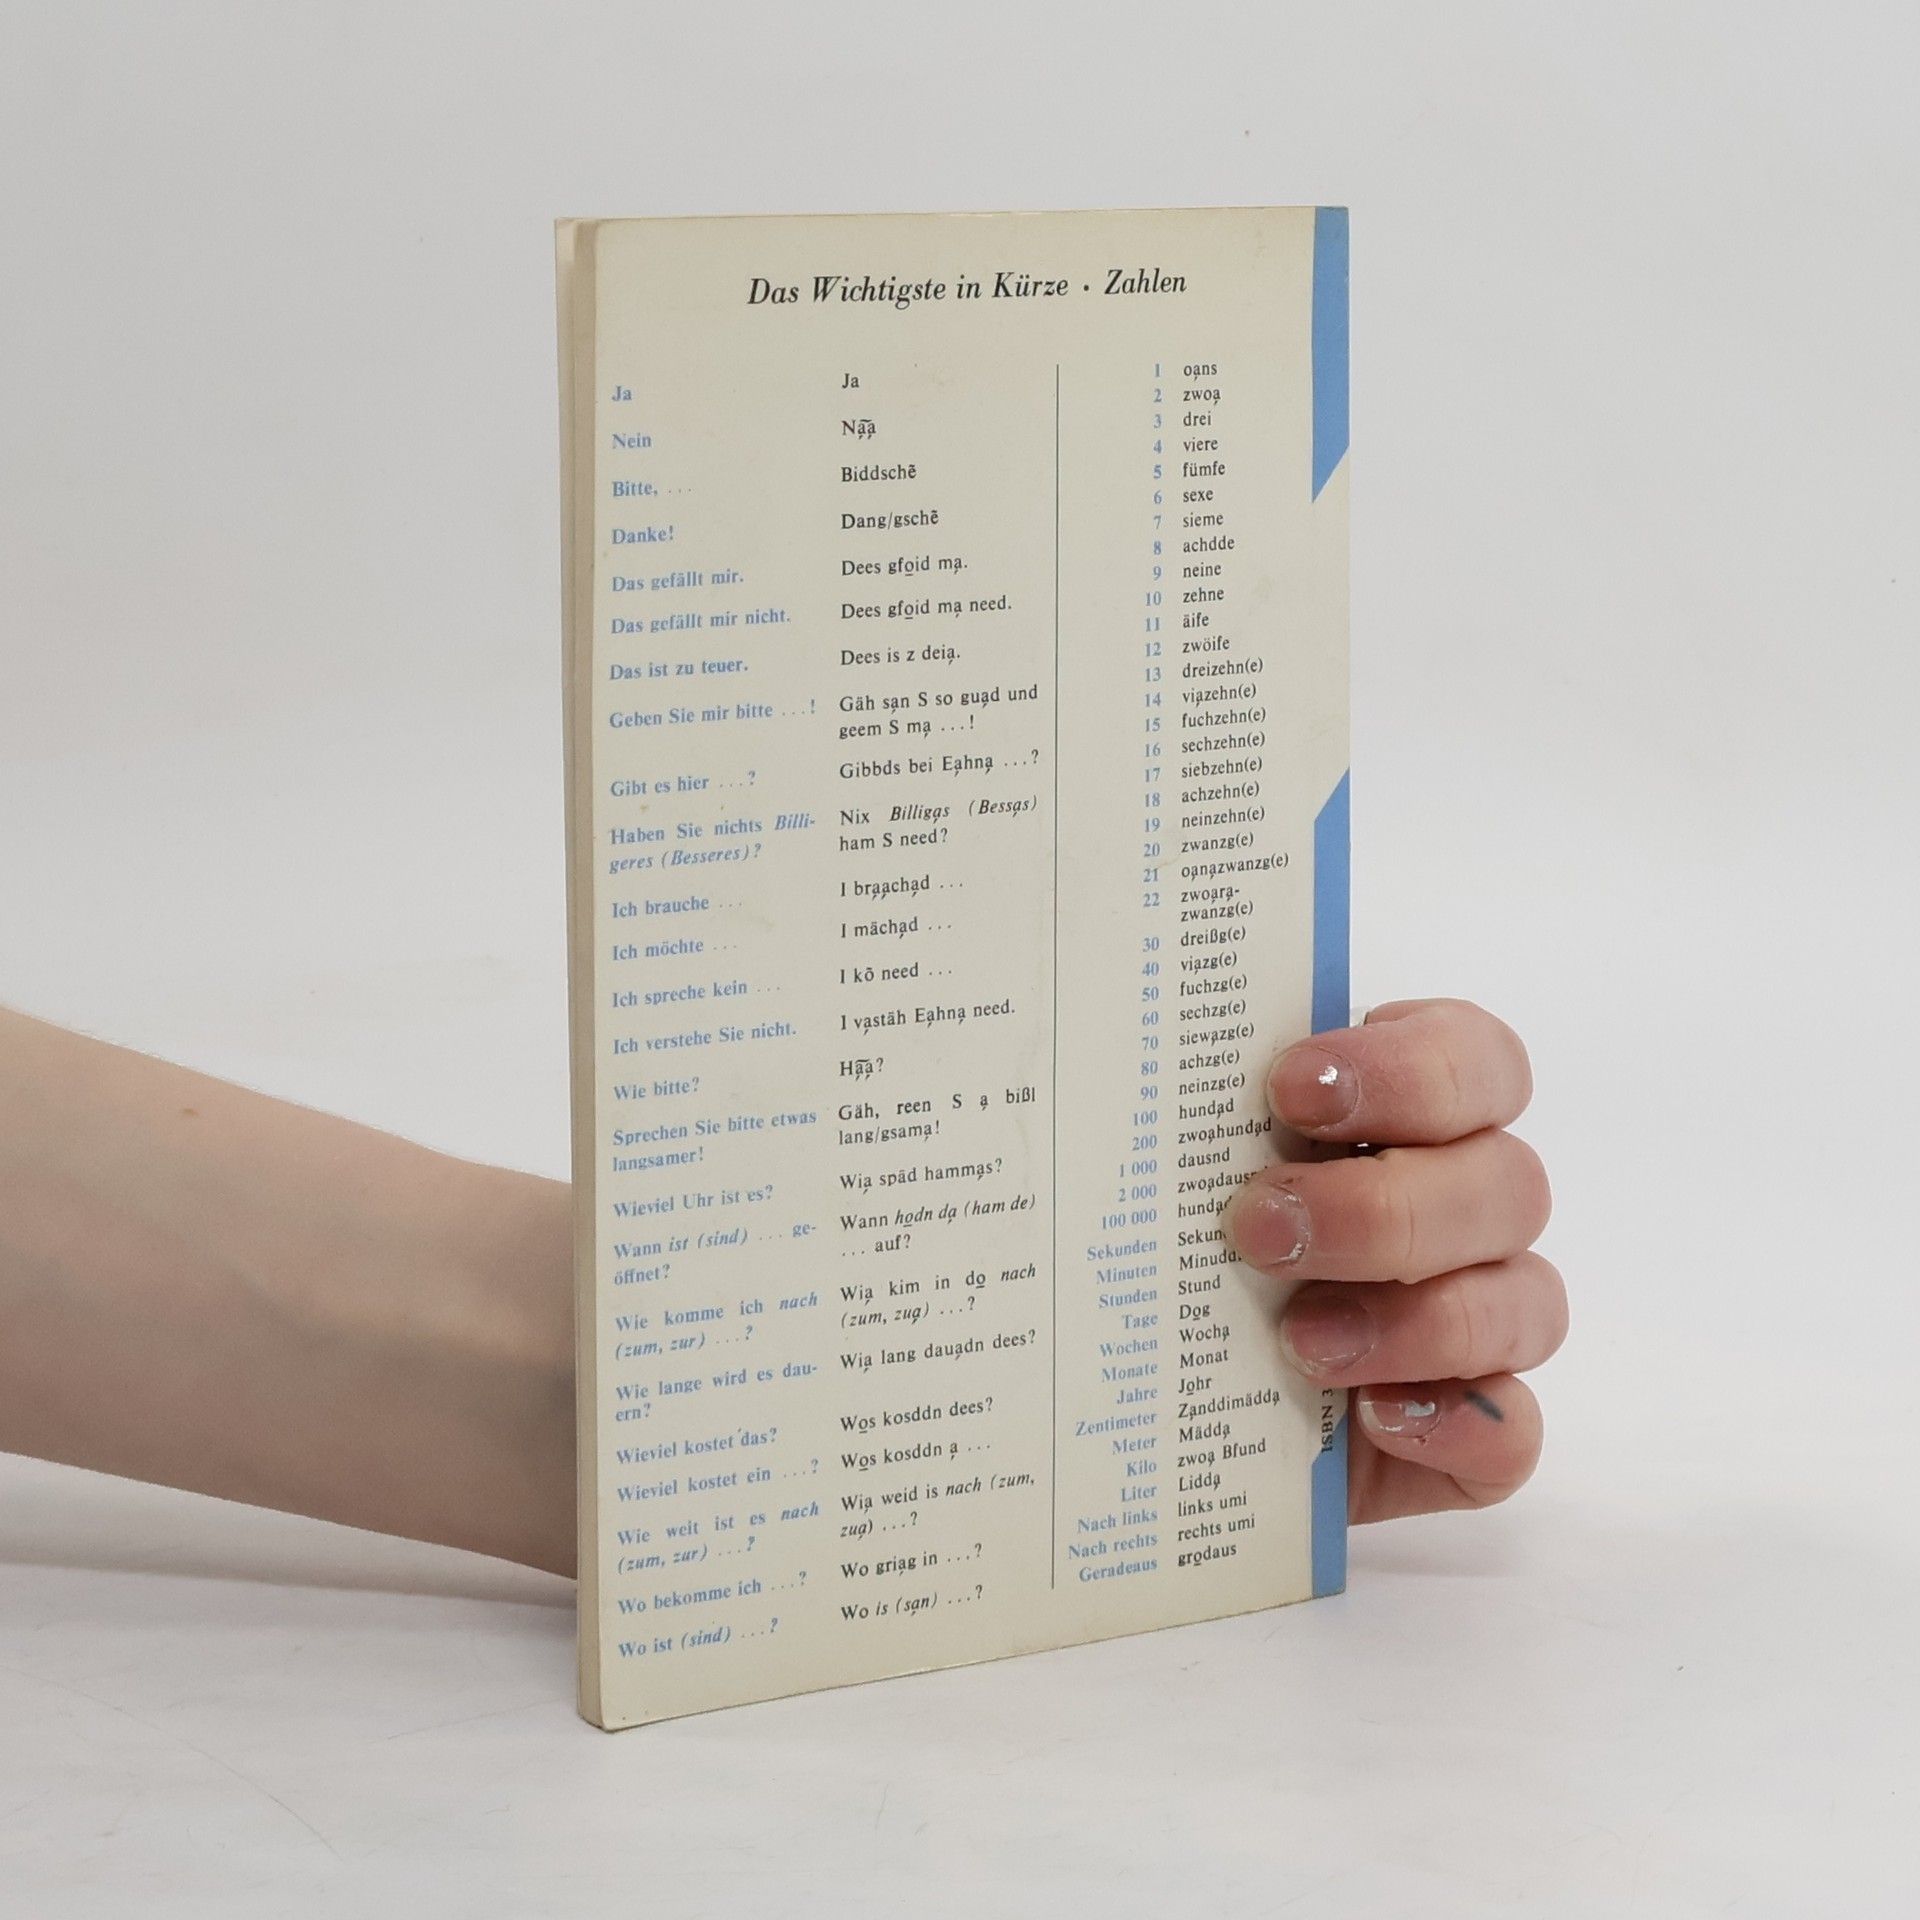 Das Wichtigste in Kürze · Zahlen
Ja
Ja
Nein
Ną̃ą̃
Bitte, ...
Biddschẽ
Danke!
Dang/gschẽ
Das gefällt mir.
Dees gfo̱id mą.
Das gefällt mir nicht.
Dees gfo̱id mą need.
Das ist zu teuer.
Dees is z deią.
Geben Sie mir bitte ...!
Gäh sąn S so guąd und
geem S mą ...!
Gibt es hier ...?
Gibbds bei Eąhną ...?
Haben Sie nichts Billi-
geres (Besseres)?
Nix Billigąs (Bessąs)
ham S need?
Ich brauche ...
I brąąchąd ...
Ich möchte ...
I mächąd ...
Ich spreche kein ...
I kõ need ...
Ich verstehe Sie nicht.
I vąstäh Eąhną need.
Wie bitte?
Hą̃ą̃?
Sprechen Sie bitte etwas
langsamer!
Gäh, reen S ą bißl
lang/gsamą!
Wieviel Uhr ist es?
Wią späd hammąs?
Wann ist (sind) ... ge-
öffnet?
Wann ho̱dn dą (ham de)
... auf?
Wie komme ich nach
(zum, zur) ...?
Wią kim in do̱ nach
(zum, zuą) ...?
Wie lange wird es dau-
ern?
Wią lang dauądn dees?
Wieviel kostet das?
Wo̱s kosddn dees?
Wieviel kostet ein ...?
Wo̱s kosddn ą ...
Wie weit ist es nach
(zum, zur) ...?
Wią weid is nach (zum,
zuą) ...?
Wo bekomme ich ...?
Wo griąg in ...?
Wo ist (sind) ...?
Wo is (sąn) ...?
1 oąns
2 zwoą
3 drei
4 viere
5 fümfe
6 sexe
7 sieme
8 achdde
9 neine
10 zehne
11 äife
12 zwöife
13 dreizehn(e)
14 viązehn(e)
15 fuchzehn(e)
16 sechzehn(e)
17 siebzehn(e)
18 achzehn(e)
19 neinzehn(e)
20 zwanzg(e)
21 oąnązwanzg(e)
22 zwoąrą-
zwanzg(e)
30 dreißg(e)
40 viązg(e)
50 fuchzg(e)
60 sechzg(e)
70 siewązg(e)
80 achzg(e)
90 neinzg(e)
100 hundąd
200 zwoąhundąd
1 000 dausnd
2 000
100 000
Sekunden
Minuten
Stunden Stund
Tage Do̱g
Wochen Wochą
Monate Monat
Jahre Jo̱hr
Zentimeter Ząnddimäddą
Meter Mäddą
Kilo zwoą Bfund
Liter Liddą
Nach links links umi
Nach rechts rechts umi
Geradeaus gro̱daus
ISBN 3